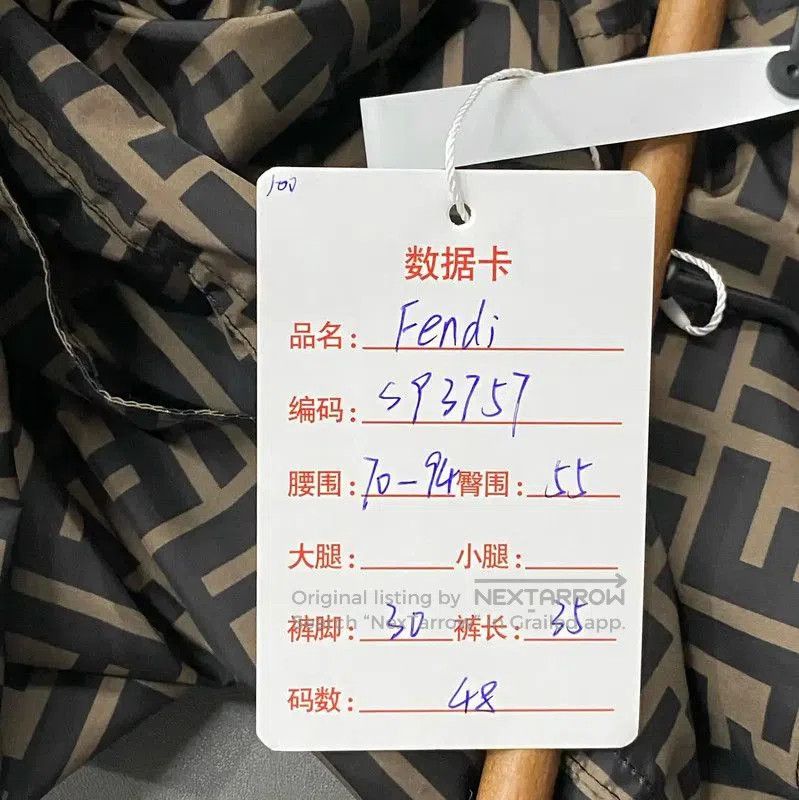 100
数据卡
品名: Fendi
编码: S93757
腰围: 70-94 臀围: 55
大腿: 小腿:
Original listing by NEXTARROW
Search "NexTarrow" in Grailed app.
裤脚: 30 裤长: 35
码数: 48